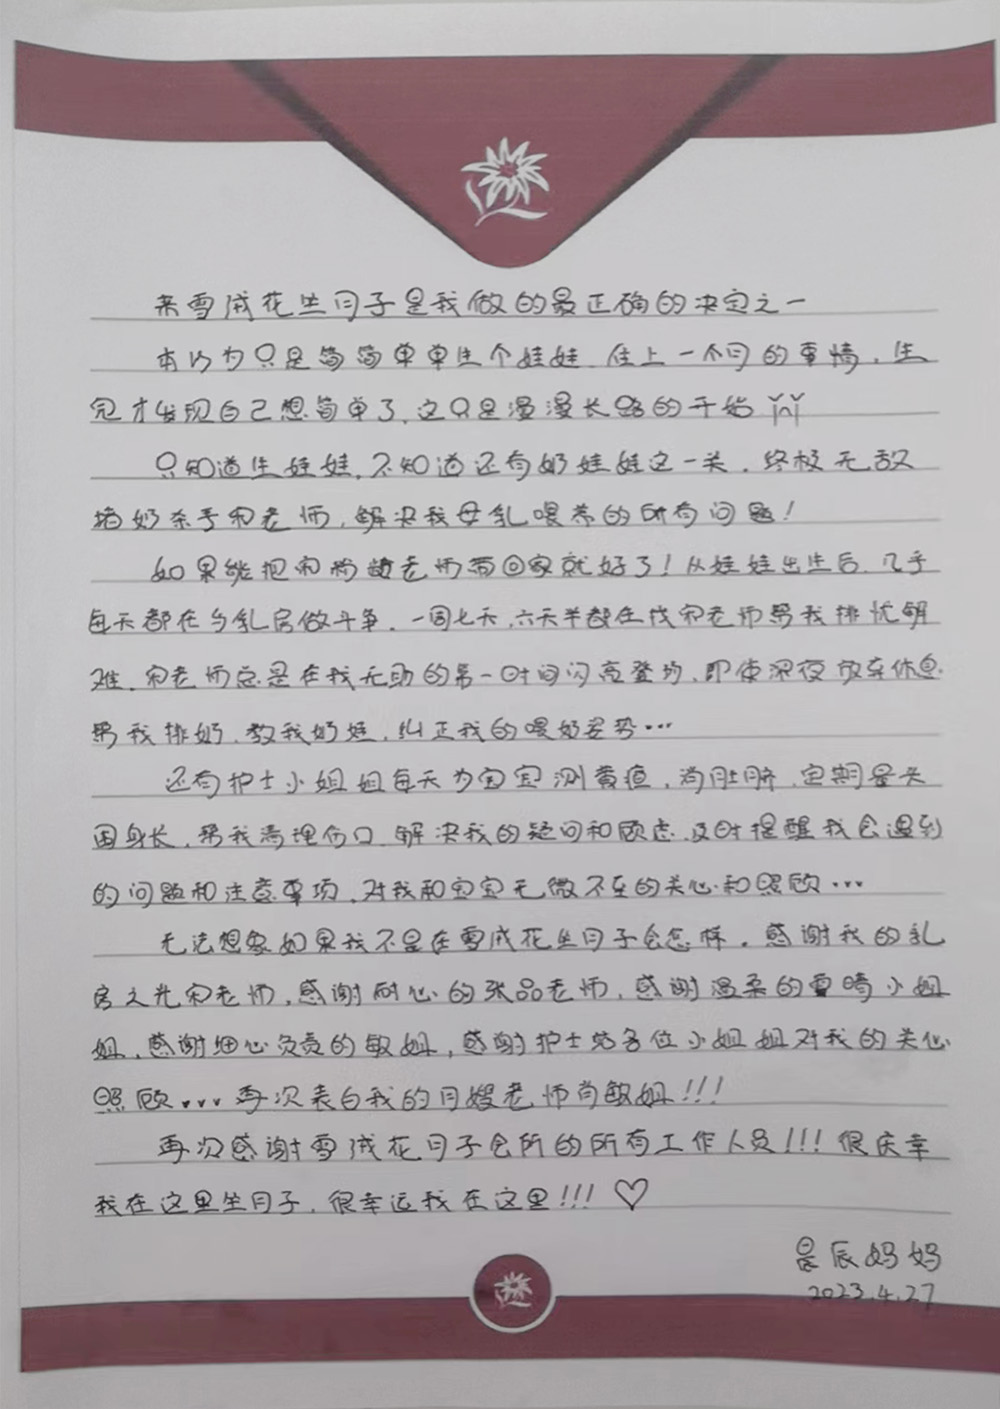 来雪绒花坐月子是我做的最正确的决定之一
本以为只是简简单单生个娃娃.住上一个月的事情,生
完才发现自己想简单了,这只是漫漫长路的开始
只知道生娃娃,不知道还有奶娃娃这一关.终极无敌
堵奶杀手宋老师,解决我母乳喂养的所有问题!
如果能把宋老师带回家就好了!从娃娃出生后.几乎
每天都在与乳房做斗争.一周七天,六天半都在找宋老师帮我排忧解
难.宋老师总是在我无助的第一时间闪亮登场,即使深夜放弃休息
帮我排奶.教我奶娃,纠正我的喂奶姿势…
还有护士小姐姐每天为宝宝测黄疸,消肚脐.定期量头
围身长,帮我清理伤口.解决我的疑问和顾虑.及时提醒我会遇到
的问题和注意事项.对我和宝宝无微不至的关心和照顾…
无法想象如果我不是在雪绒花坐月子会怎样.感谢我的乳
房之光宋老师,感谢耐心的张品老师,感谢温柔的小姐
姐,感谢细心负责的敏姐,感谢护士站各位小姐姐对我的关心
照顾...再次表白我的月嫂老师肖敏姐!!!
再次感谢雪绒花月子会所的所有工作人员!!!很庆幸
我在这里坐月子,很幸运我在这里!!!♡
晨辰妈妈
2023.4.27